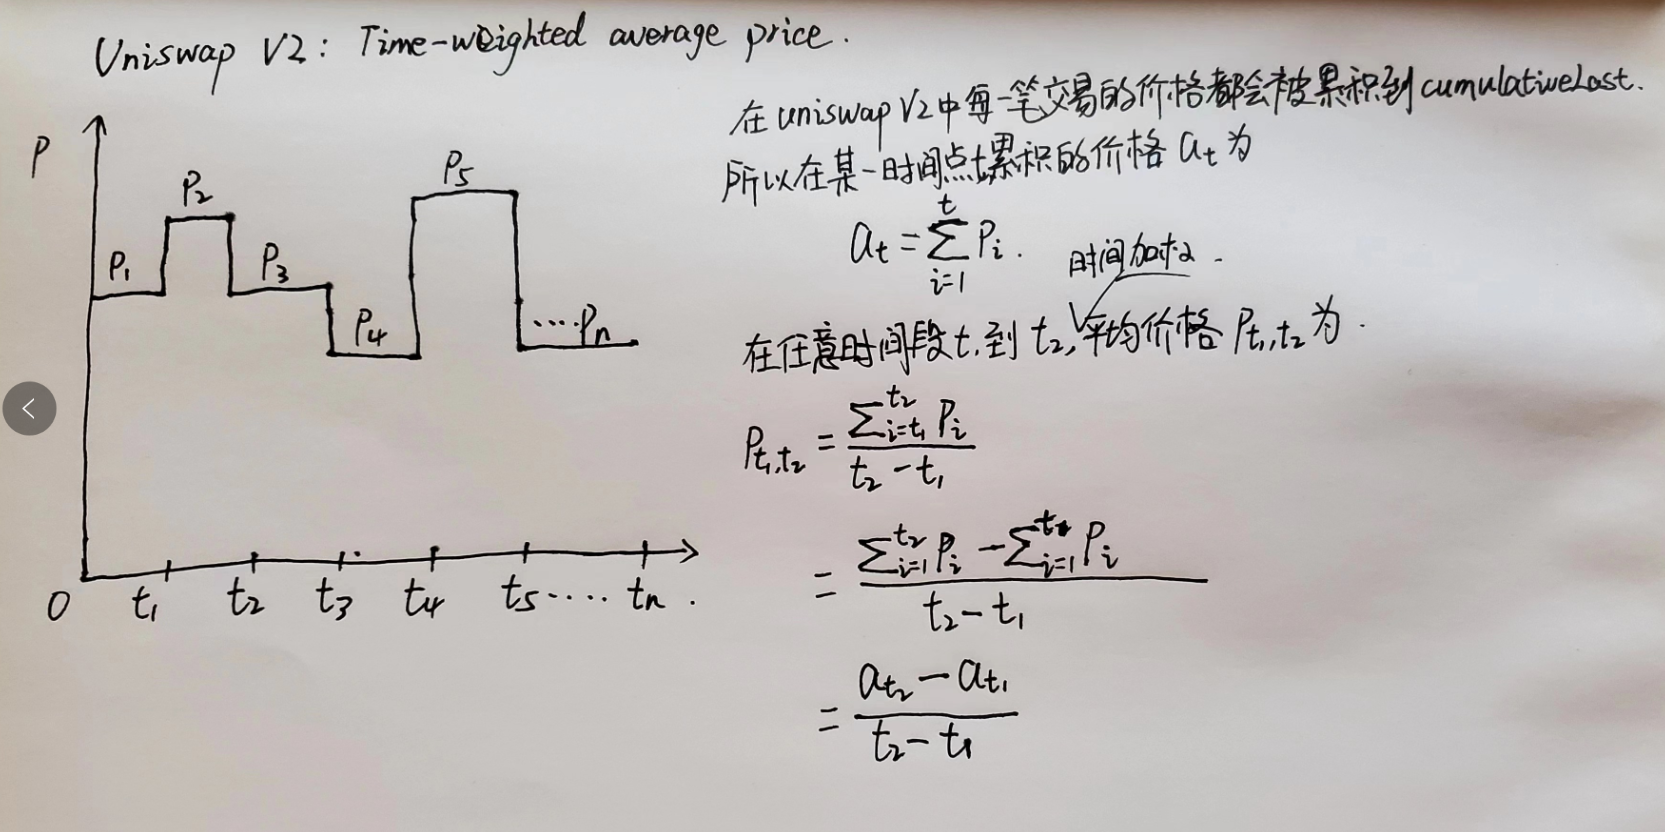 Uniswap V2: Time-weighted average price.
P
P₁
P₂
P₃
P₄
P₅
....Pn
0 t₁ t₂ t₃ t₄ t₅.... tn.
在uniswap V2中每一笔交易的价格都会被累积到cumulativeLast.
所以在某一时间点t累积的价格 at 为
at = ∑ᵢ₌₁ᵗ Pᵢ.
时间加权.
在任意时间段t₁到t₂,平均价格 Pt₁,t₂ 为.
Pt₁,t₂ = ∑ᵢ₌t₁^t₂ Pᵢ / t₂ - t₁
= ∑ᵢ₌₁^t₂ Pᵢ - ∑ᵢ₌₁^t₁ Pᵢ / t₂ - t₁
= at₂ - at₁ / t₂ - t₁